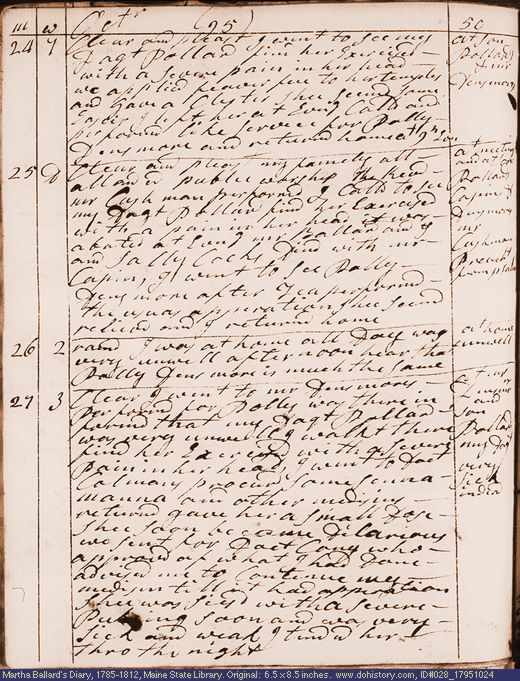 m w Oct^r (25) 50
24 7 Clear and pleast I went to see my
Dagt Pollard find her Exercisd
with a severe pain in her head
we applied peawerfuee to her temples
and Gave a Clystis shee seemd some
Easier I left her at Evng Calld and
performd like Service for Polly
Densmore and returnd home at 9 h Evn
at son
Pollards
& mr
Densmors
25 D Clear and pleast my family all
attend publick worship the revd
mr Cashman performd I Calld to see
my Dagt Pollard find her Exercisd
with a pain in her head it was
abated at Evng mr Pollard and I
and Sally Cocks Dind with mr
Capins I went to see Polly
Densmore after Tea performd
the usual opperation shee seemd
relievd and I returnd home
at meeting
and at son
Pollards
Capins &
Densmores
mr
Cashman
Preacht
from psalms
26 2 raind I was at home all Day was
very unwell afternoon hear that
Polly Densmore is much the same
at home
unwell
27 3 Clear I went to mr Densmores
performd for Polly was there in
formd that my Dagt Pollard
was very unwell I walkt there
find her Exercisd with a severe
Pain in her head I went to Doct
Colmans procured some senna
manna and other medisin
returnd gave her a small Dose
shee soon became Dilarious
we sent for Doct Cony who
approvd of what I had Done
advised me to Continue my
medisin till it had opperation
shee was seisd with a severe
Puking soon and was very
sick and weak I tended her
thro the night
at mr
Densmors
and
son
Pollards
my Dagt
very
sick
indeed
Martha Ballard's Diary, 1785-1812, Maine State Library. Original: 6.5 x 8.5 inches. www.dohistory.com, ID#028_17951024